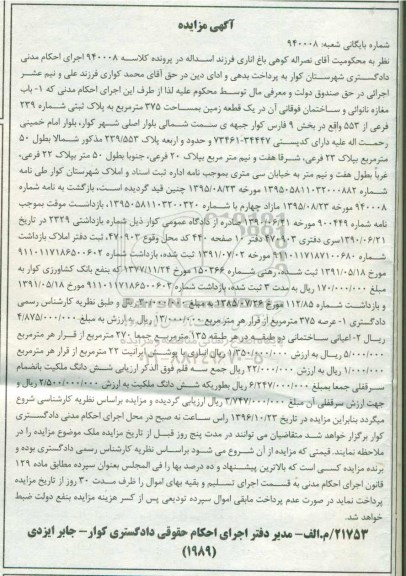 آگهی مزایده
شماره بایگانی شعبه: ۹۴۰۰۰۸
نظر به محکومیت آقای نصراله کوهی باغ اناری فرزند اسداله در پرونده کلاسه ۹۴۰۰۰۸ اجرای احکام مدنی
دادگستری شهرستان کوار به پرداخت بدهی و ادای دین در حق آقای محمد کواری فرزند علی و نیم عشر
اجرائی در حق صندوق دولت و معرفی مال توسط محکوم علیه لذا از طرف این اجرای احکام مدنی که ۱- باب
مغازه نانوائی و ساختمان فوقانی آن در یک قطعه زمین بمساحت ۳۷۵ مترمربع به پلاک ثبتی شماره ۲۳۹
فرعی از ۵۵۳ واقع در بخش ۹ فارس کوار جبهه ی سمت شمالی بلوار اصلی شهر کوار، بلوار امام خمینی
رحمت اله علیه دارای کدپستی ۳۴۴۴۷-۷۳۴۶۱ و حدود و اربعه پلاک ۲۳۹/۵۵۳ مذکور شمالا بطول ۵۰
مترمربع بپلاک ۲۳ فرعی، شرقا هفت و نیم متر مربع بپلاک ۲۰ فرعی، جنوبا بطول ۵۰ متر بپلاک ۲۲ فرعی،
غربا بطول هفت و نیم متر به خیابان سی متری بموجب نامه اداره ثبت اسناد و املاک شهرستان کوار طی نامه
شماره ۱۳۹۵۰۵۸۱۱۰۳۲۰۰۰۸۸۲ مورخه ۱۳۹۵/۰۸/۲۳ چنین قید گردیده است، بازگشت به نامه شماره
۹۴۰۰۰۸ مورخه ۱۳۹۵/۰۸/۲۳ مازاد چهارم با شماره ۱۳۹۵۰۵۸۱۱۰۳۲۰۰۰۳۲۰، بازداشت موقت بموجب
نامه شماره ۹۰۰۴۴۹ مورخه ۱۳۹۰/۰۶/۲۱ صادره از دادگاه عمومی کوار ذیل شماره بازداشتی ۲۳۲۹ در تاریخ
۱۳۹۰/۰۶/۲۱ سری دفتری ۴۷۰۹۰۳ دفتر ۱۰ صفحه ۴۴۰ که محل وقوع ۴۷۰۹۰۳، ثبت دفتر املاک بازداشت
شماره ۹۱۱۰۱۱۷۱۸۷۱۰۰۶۸۰ مورخ ۱۳۹۱/۰۷/۰۲ ثبت شده، بازداشت شماره ۹۱۱۰۱۱۷۱۸۶۵۰۰۶۰۲
مورخ ۱۳۹۱/۰۵/۱۸ ثبت شده، رهنی شماره ۱۵۰۳۶۶ مورخ ۱۳۷۷/۱۱/۲۴ که بنفع بانک کشاورزی کوار به
مبلغ ۱۷۰/۰۰۰/۰۰۰ ریال به مدت ۳ ثبت شده، بازداشت شماره ۹۱۱۰۱۱۷۱۸۶۵۰۰۶۰۲ مورخ ۱۳۹۱/۰۵/۱۸
و بازداشت شماره ۱۱۲/۸۵ مورخ ۱۳۸۵/۰۷/۲۶ به مبلغ ریال و طبق نظریه کارشناس رسمی
دادگستری ۱- عرصه ۳۷۵ مترمربع از قرار هر مترمربع ۱۳/۰۰۰/۰۰۰ ریال به ارزش به مبلغ ۴/۸۷۵/۰۰۰/۰۰۰
ریال ۲- اعیانی ساختمانی دو طبقه در هر طبقه ۱۳۵ مترمربع و جمعا ۲۷۰ مترمربع از قرار هر مترمربع
۵/۰۰۰/۰۰۰ ریال به ارزش ۱/۳۵۰/۰۰۰/۰۰۰ ریال انباری با پوشش ایرانیت ۲۲ مترمربع از قرار هر مترمربع
۱/۰۰۰/۰۰۰ ریال به ارزش ۲۲/۰۰۰/۰۰۰ ریال جمع سه قلم فوق الذکر ارزیابی شش دانگ ملکیت بانضمام
سرقفلی جمعا بمبلغ ۶/۲۴۷/۰۰۰/۰۰۰ ریال بطوریکه شش دانگ ملکیت به ارزش ۲/۵۰۰/۰۰۰/۰۰۰ ریال و
جهت ارزش سرقفلی آن مبلغ ۳/۷۴۷/۰۰۰/۰۰۰ ریال ارزیابی گردیده و مزایده براساس نظریه کارشناسی شروع
میگردد بنابراین مزایده در تاریخ ۱۳۹۶/۱۰/۲۳ راس ساعت نه صبح در محل اجرای احکام مدنی دادگستری
کوار برگزار خواهد شد. متقاضیان می توانند در مدت پنج روز قبل از تاریخ مزایده ملک موضوع مزایده را
ملاحظه نمایند. قیمتی که مزایده از آن شروع می شود براساس نظریه کارشناس رسمی دادگستری بوده و
برنده مزایده کسی است که بالاترین پیشنهاد و ده درصد بها را فی المجلس بعنوان سپرده مطابق ماده ۱۲۹
قانون اجرای احکام مدنی به قسمت اجرای تسلیم و بقیه بهای اموال را ظرف مدت ۳۰ روز از تاریخ مزایده
پرداخت نماید در صورت عدم پرداخت مابقی اموال سپرده تودیعی پس از کسر هزینه مزایده بنفع دولت ضبط
خواهد شد.
۲۱۷۵۳/م.الف- مدیر دفتر اجرای احکام حقوقی دادگستری کوار- جابر ایزدی
(۱۹۸۹)